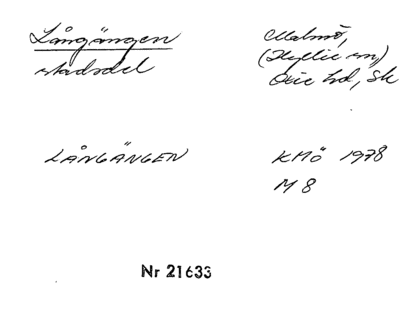 Långängen
stadsdel
Malmö,
(Hyllie sn,)
Oxie hd, Sk
LÅNGÄNGEN
KMÖ 1978
M 8
Nr 21633